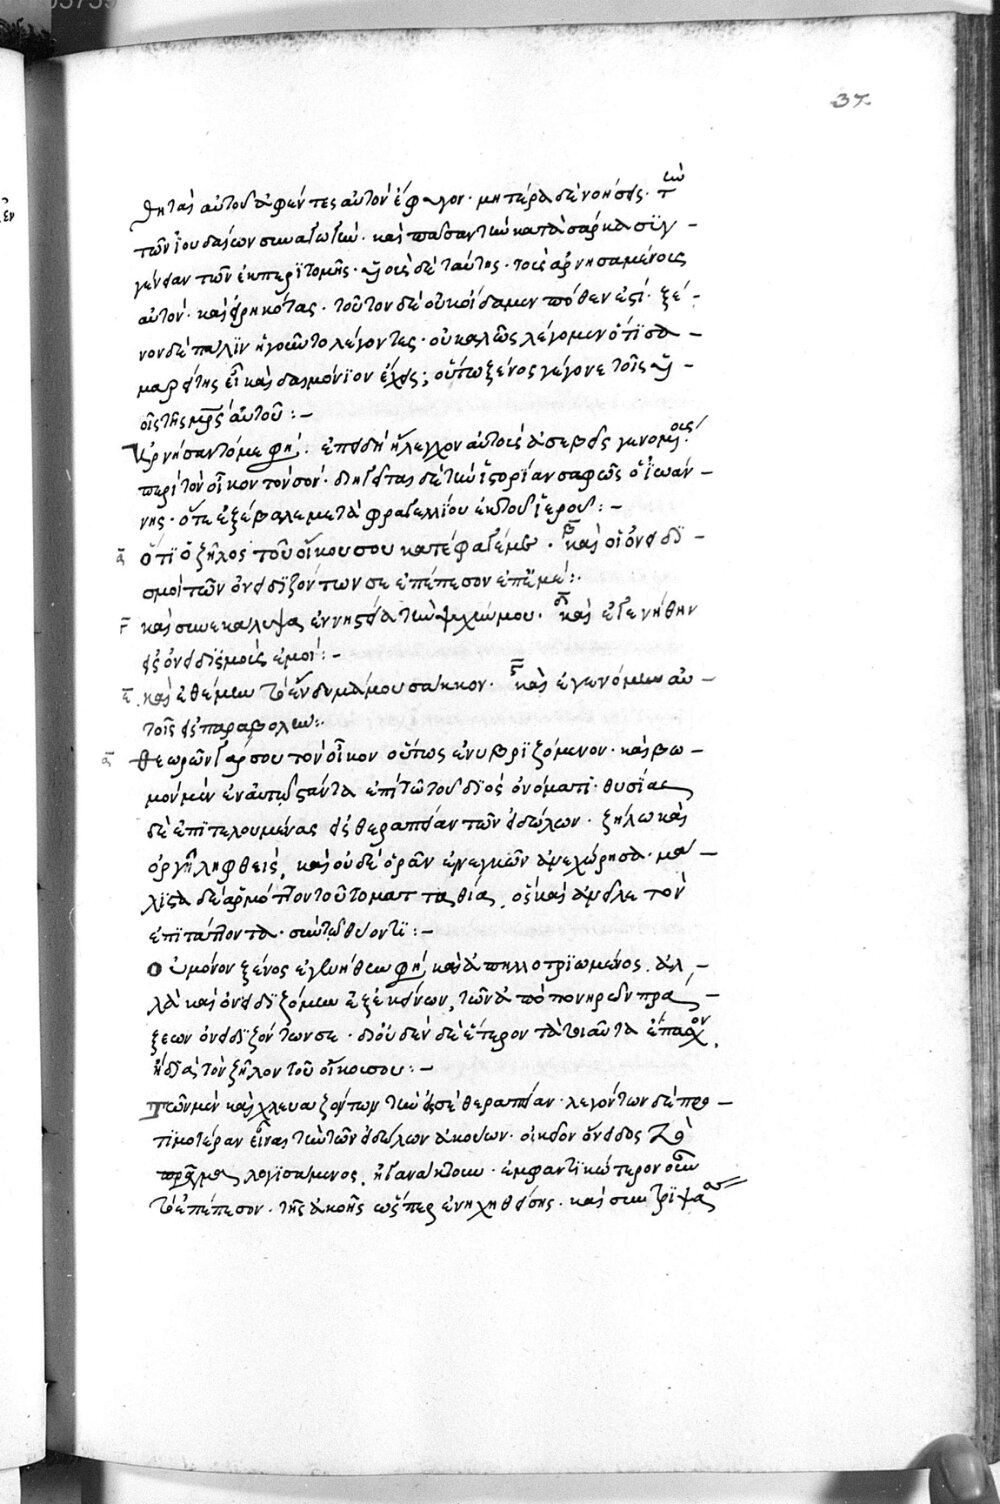 37
θηταὶ αὐτοῦ ἀφέντες αὐτὸν ἔφυγον· μητέρα δὲ νοήσεις· τὴν
τῶν ἰουδαίων συναγωγὴν· καὶ πᾶσαν τὴν κατὰ σάρκα συγ-
γένειαν τῶν ἐκ περιτομῆς· υἱοὺς δὲ ταύτης· τοὺς ἀρνησαμένους
αὐτὸν· καὶ εἰρηκότας· τοῦτον δὲ οὐκ οἴδαμεν πόθεν ἐστί· ξέ-
νον δὲ πάλιν ἡγοῦντο λέγοντες· οὐ καλῶς λέγομεν ὅτι σα-
μαρείτης εἶ καὶ δαιμόνιον ἔχεις; οὕτω ξένος γέγονε τοῖς υἱ-
οῖς τῆς μρς αὐτοῦ:-
Ηρνήσαντό με φησί· ἐπειδὴ ἤλεγχον αὐτοὺς ἀσεβεῖς γενομένους
περὶ τὸν οἶκον τὸν σόν· διηγεῖται δὲ τὴν ἱστορίαν σαφῶς ὁ ἰωάν-
νης· ὅτε ἐξέβαλε μετὰ φραγελλίου ἐκ τοῦ ἱεροῦ:-
α ὅτι ὁ ζῆλος τοῦ οἴκου σου κατέφαγέ με· β καὶ οἱ ὀνειδι-
σμοὶ τῶν ὀνειδιζόντων σε ἐπέπεσον ἐπ' ἐμέ:
γ καὶ συνεκάλυψα ἐν νηστείᾳ τὴν ψυχήν μου· δ καὶ ἐγενήθην
εἰς ὀνειδισμοὺς ἐμοί:-
ε καὶ ἐθέμην τὸ ἔνδυμά μου σάκκον· ϛ καὶ ἐγενόμην αὐ-
τοῖς εἰς παραβολήν:
α Θεωρῶν γάρ σου τὸν οἶκον οὕτως ἐνυβριζόμενον· καὶ βω-
μὸν μὲν ἐν αὐτῷ στάντα ἐπὶ τῷ τοῦ διὸς ὀνόματι· θυσίας
δὲ ἐπιτελουμένας εἰς θεραπείαν τῶν εἰδώλων· ζήλω καὶ
ὀργῆ ληφθεὶς, καὶ οὐδὲ ὁρᾶν ἐνεγκὼν ἀνεχώρησα· μά-
λιστα δὲ ἁρμόττον τοῦτο ματταθία, ὃς καὶ ἀνεῖλε τὸν
ἐπιτάττοντα· σὺν τῷ θύοντι:-
Οὐ μόνον ξένος ἐγενήθην φησὶ, καὶ ἀπηλλοτριωμένος, ἀλ-
λὰ καὶ ὀνειδιζόμην ἐξ ἐκείνων, τῶν ἀπὸ πονηρῶν πρά-
ξεων ὀνειδιζόντων σε· δι' οὐδὲν δὲ ἕτερον τὰ τοιαῦτα ἔπασχον,
ἢ διὰ τὸν ζῆλον τοῦ οἴκου σου:-
Τῶν μὲν καὶ χλευαζόντων τὴν εἰς σὲ θεραπείαν· λεγόντων δὲ προ-
τιμοτέραν εἶναι τὴν τῶν εἰδώλων ἀκούων· οἰκεῖον ὄνειδος τὸ
πρᾶγμα λογισάμενος, ἠγανάκτουν· ἐμφαντικώτερον οὖν
τὸ ἐπέπεσον· τῆς ἀκοῆς ὥσπερ ἐνηχηθείσης· καὶ συντρίψασ